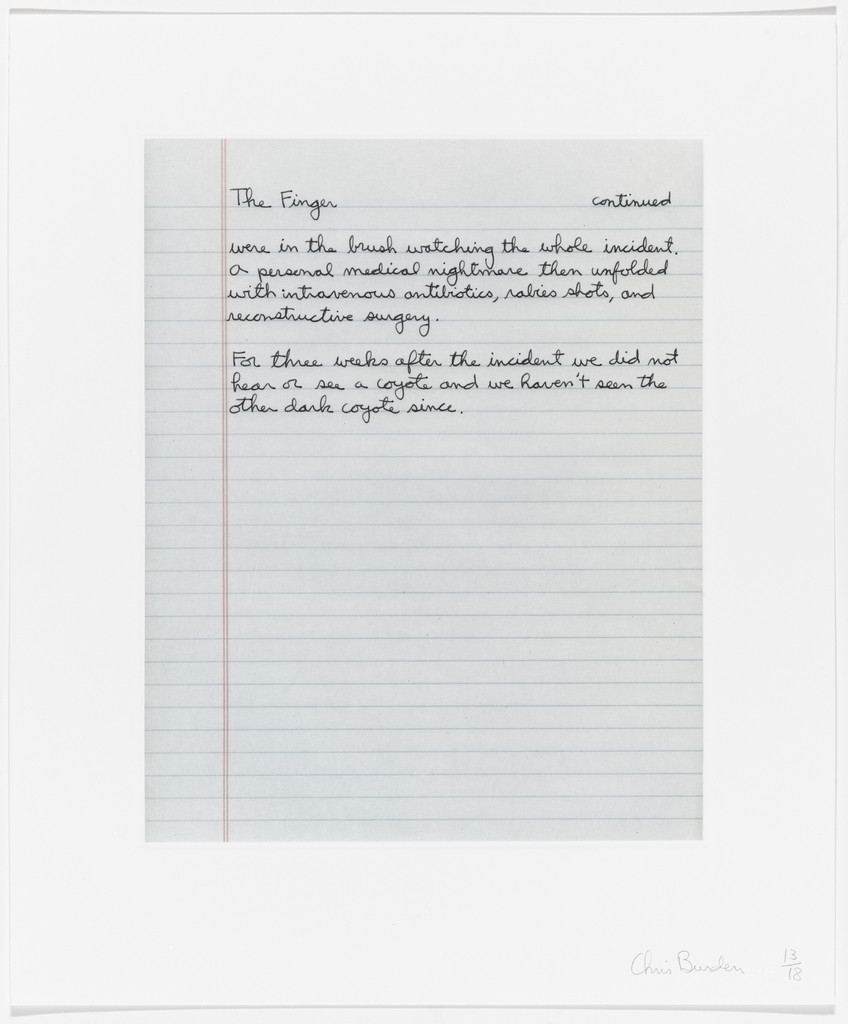 The Finger continued
were in the brush watching the whole incident.
A personal medical nightmare then unfolded
with intravenous antibiotics, rabies shots, and
reconstructive surgery.
For three weeks after the incident we did not
hear or see a coyote and we haven't seen the
other dark coyote since.
Chris Burden 13/18